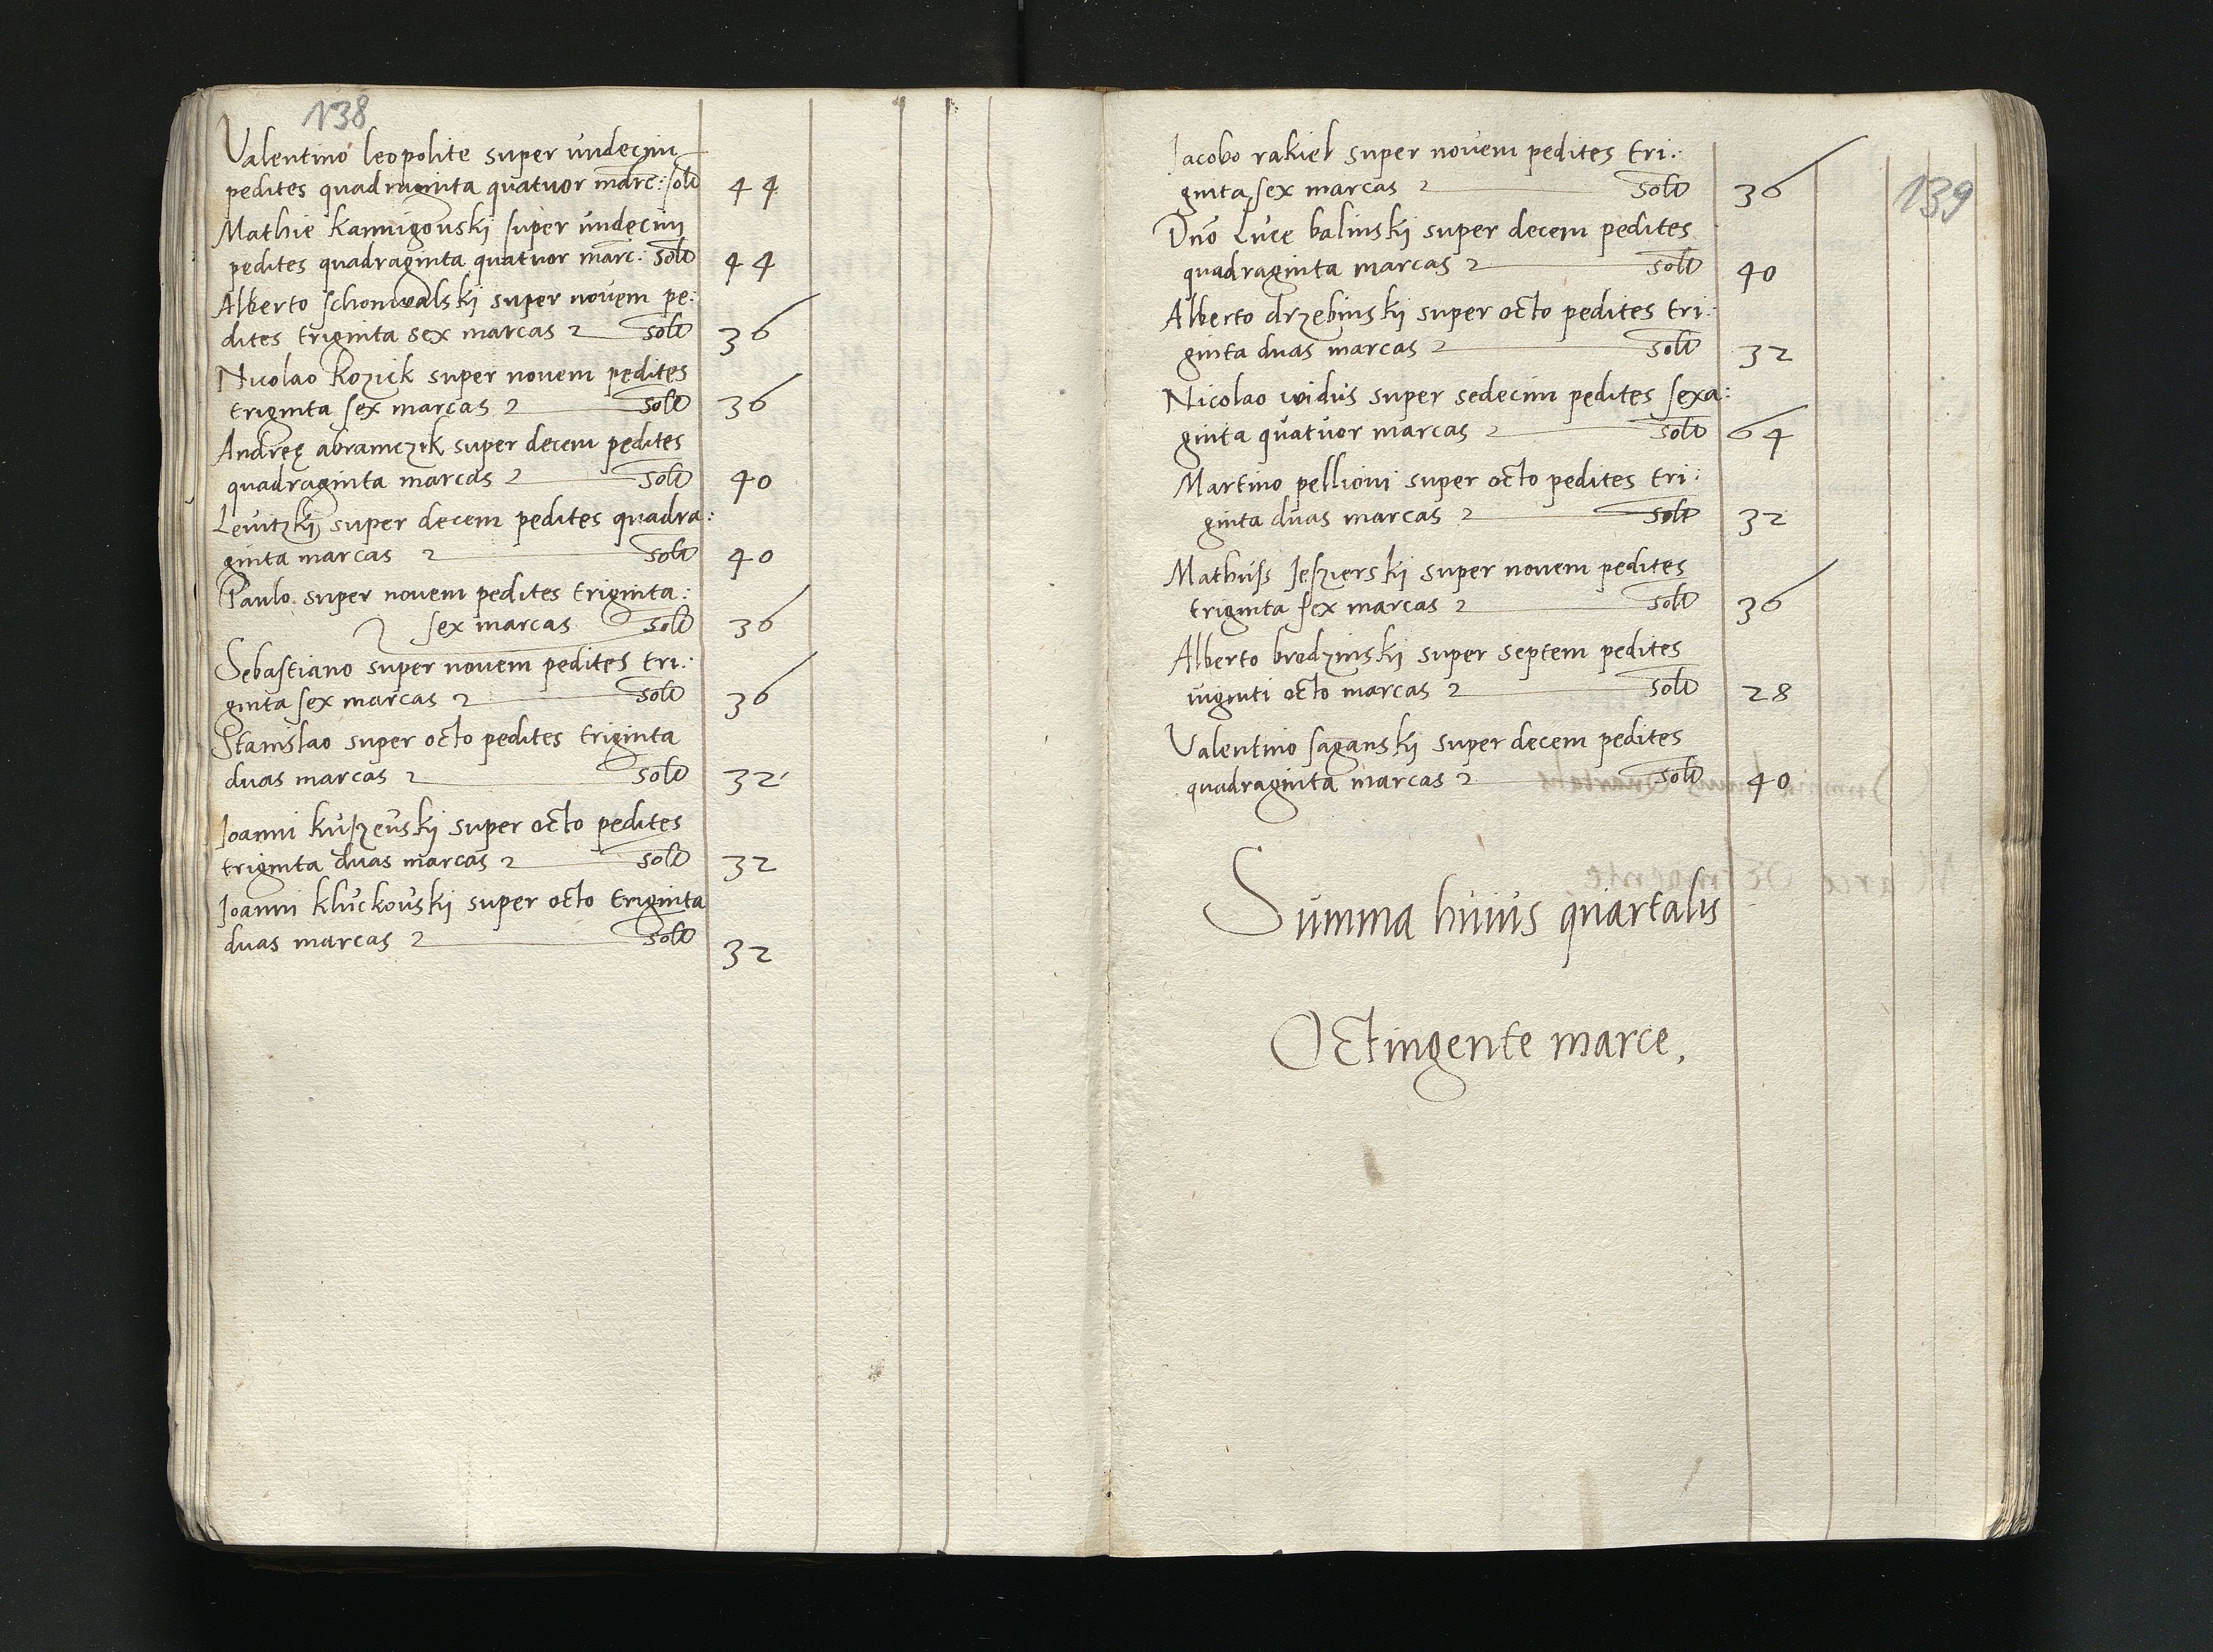 138
Valentino leopolite super undecim
pedites quadraginta quatuor marc: solu 44
Mathie Kamigouski super undecim
pedites quadraginta quatuor marc: solu 44
Alberto schonwalski super novem pe:
dites triginta sex marcas solu 36
Nicolao Kozick super novem pedites
triginta sex marcas solu 36
Andreę abramczik super decem pedites
quadraginta marcas solu 40
Levitzkij super decem pedites quadra:
ginta marcas solu 40
Paulo super novem pedites triginta:
sex marcas solu 36
Sebastiano super novem pedites tri:
ginta sex marcas solu 36
Stanislao super octo pedites triginta
duas marcas solu 32
Joanni kuszewskij super octo pedites
triginta duas marcas solu 32
Joanni kluckouskij super octo triginta
duas marcas solu 32
139
Jacobo rakiel super novem pedites tri:
ginta sex marcas solu 36
Dno Luce balinskij super decem pedites
quadraginta marcas solu 40
Alberto drzebinskij super octo pedites tri:
ginta duas marcas solu 32
Nicolao widus super sedecim pedites sexa:
ginta quatuor marcas solu 64
Martino pellioni super octo pedites tri:
ginta duas marcas solu 32
Mathuss Jeszierskij super novem pedites
triginta sex marcas solu 36
Alberto brodzinskij super septem pedites
viginti octo marcas solu 28
Valentino saganskij super decem pedites
quadraginta marcas solu 40
Summa huius quartalis
Octingente marce,